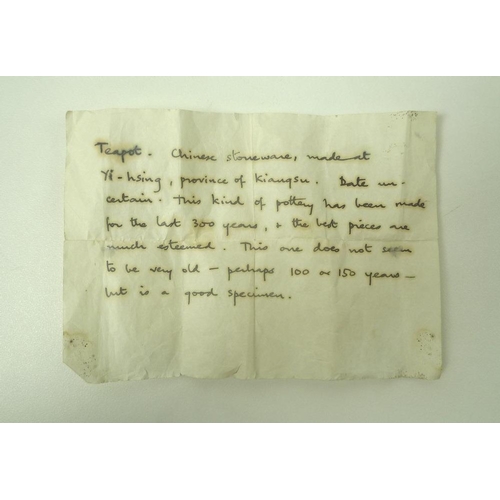 Teapot. Chinese stoneware, made at
Yi-hsing, province of Kiangsu. Date un-
certain. This kind of pottery has been made
for the last 300 years, & the best pieces are
much esteemed. This one does not seem
to be very old – perhaps 100 or 150 years –
but is a good specimen.